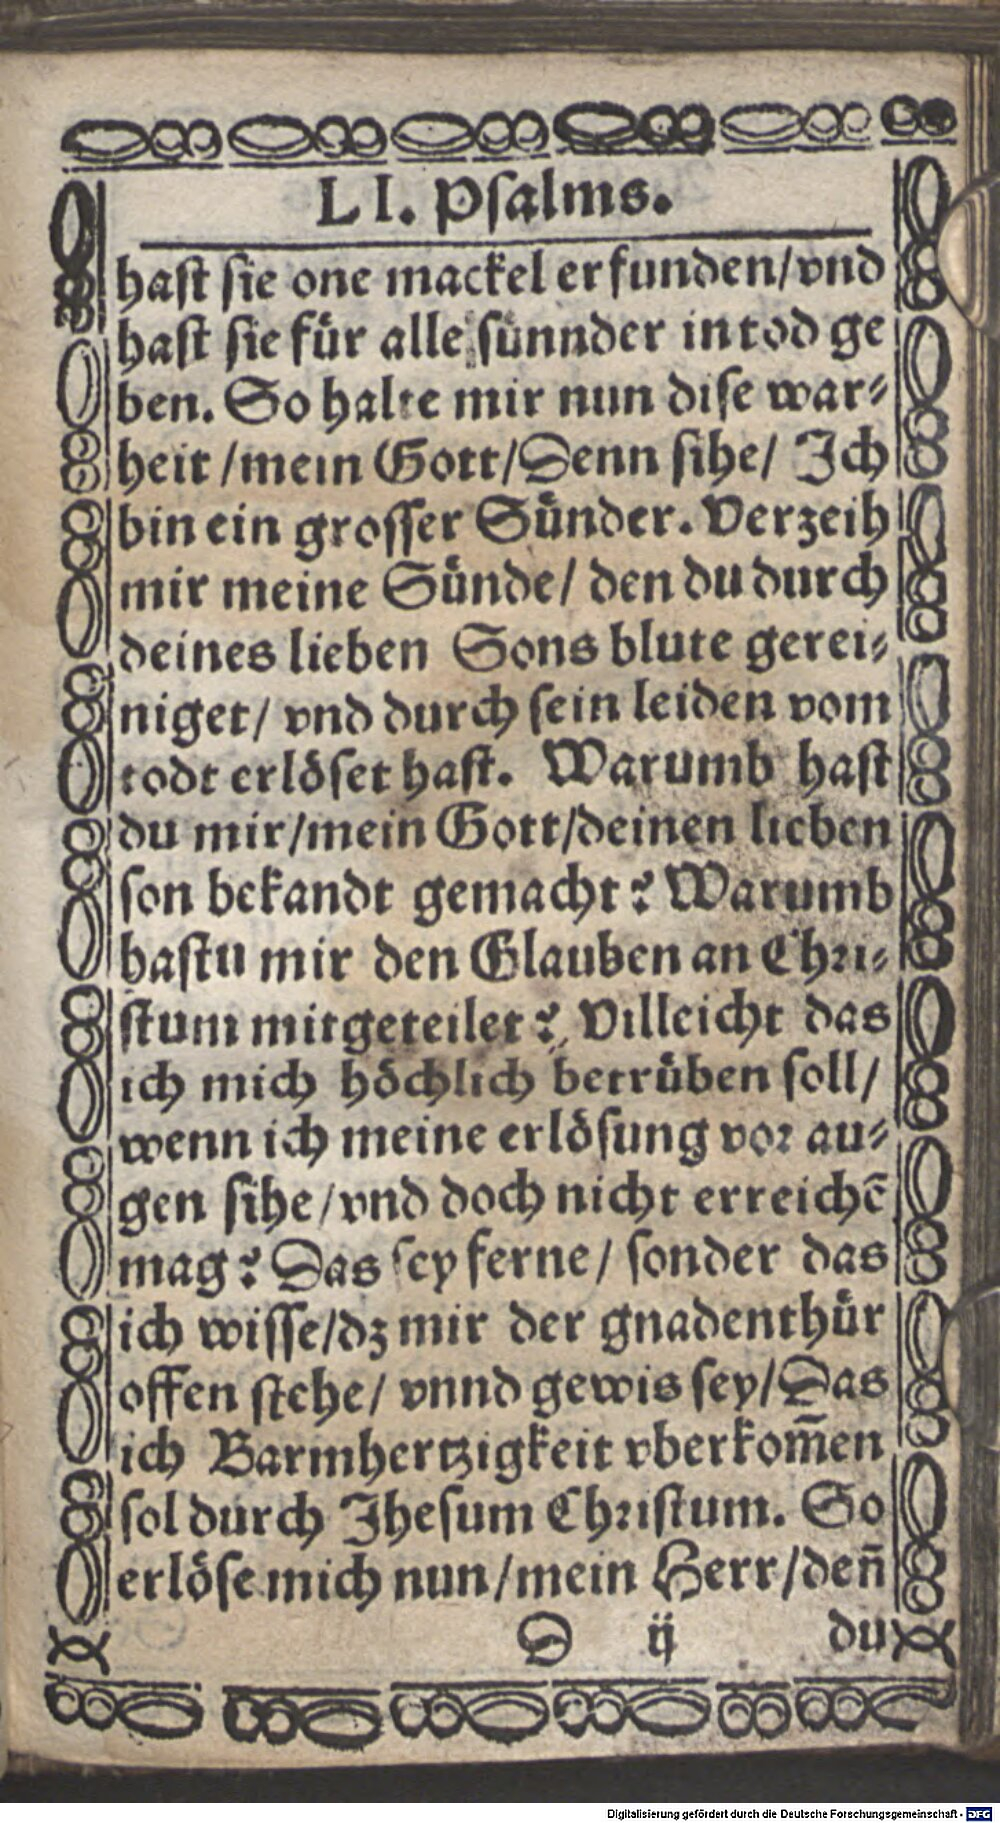 LI. Psalms.
hast sie one mackel erfunden/vnd
hast sie für alle sünnder in tod ge
ben. So halte mir nun dise war⸗
heit/mein Gott/Denn sihe/ Ich
bin ein grosser Sünder. Verzeih
mir meine Sünde/ den du durch
deines lieben Sons blute gerei⸗
niget/ vnd durch sein leiden vom
todt erlöset hast. Warumb hast
du mir/mein Gott/deinen lieben
son bekandt gemacht? Warumb
hastu mir den Glauben an Chri⸗
stum mitgeteilet? Villeicht das
ich mich höchlich betrüben soll/
wenn ich meine erlösung vor au⸗
gen sihe/vnd doch nicht erreichẽ
mag? Das sey ferne/ sonder das
ich wisse/dz mir der gnadenthür
offen stehe/ vnnd gewis sey/Das
ich Barmhertzigkeit vberkom̃en
sol durch Jhesum Christum. So
erlöse mich nun/mein Herr/deñ
D ij du
Digitalisierung gefördert durch die Deutsche Forschungsgemeinschaft - DFG